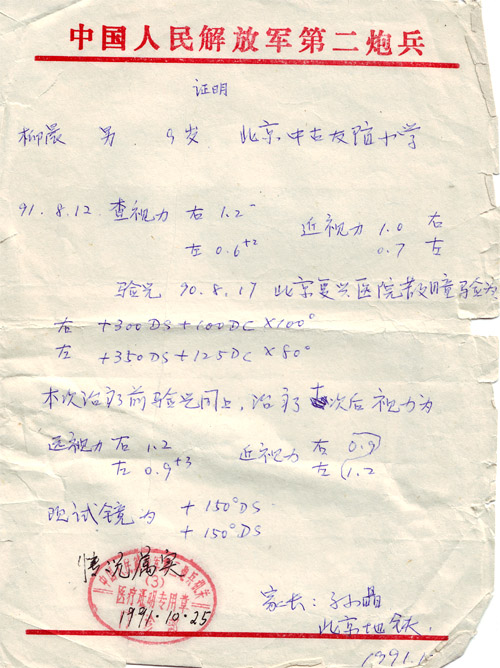 中国人民解放军第二炮兵
证明
柳晨 男 9岁 北京中古友谊小学
91.8.12. 查视力 右 1.2⁻ 近视力 1.0 右
左 0.6⁺² 0.7 左
验光 90.8.17 北京复兴医院散瞳验光为
右 +300DS+100DC×100°
左 +350DS+125DC×80°
本次治疗前验光同上,治疗 次后视力为
远视力 右 1.2 近视力 右 0.9
左 0.9⁺³ 左 1.2
现试镜为 +150°DS
+150°DS
情况属实
(3)
医疗证明专用章
1991.10.25
家长:
北京地铁
1991.